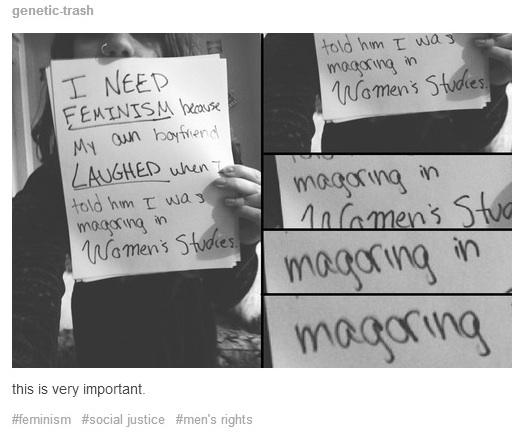 genetic-trash
I NEED
FEMINISM because
My own boyfriend
LAUGHED when I
told him I was
magoring in
Women's Studies.
told him I was
magoring in
Women's Studies.
magoring in
Women's Stud
magoring in
magoring
this is very important.
#feminism #social justice #men's rights